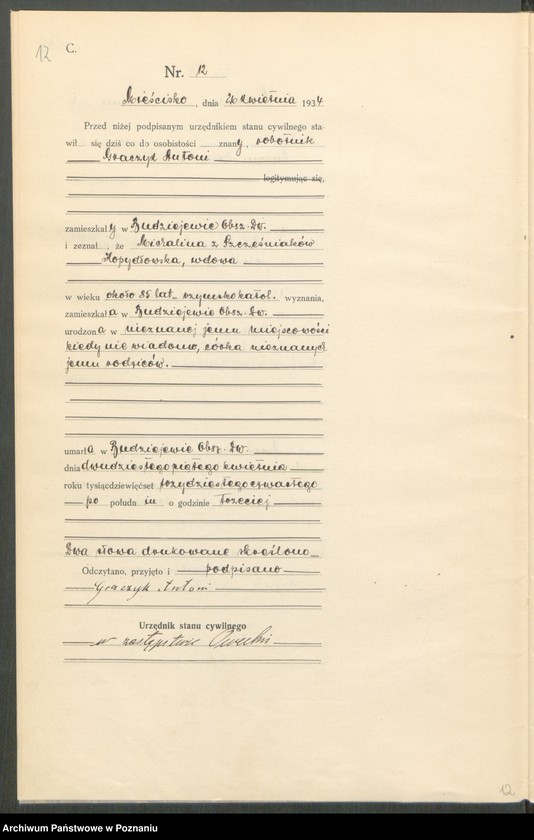 12
C.
Nr. 12
Mieścisko, dnia 26 kwietnia 1934
Przed niżej podpisanym urzędnikiem stanu cywilnego sta-
wił się dziś co do osobistości znany, robotnik
Graczyk Antoni
legitymując się,
zamieszkały w Budziejewie Obsz. Dw.
i zeznał, że Michalina z Szcześniaków
Kopydłowska, wdowa
w wieku około 85 lat rzymskokatol. wyznania,
zamieszkała w Budziejewie Obsz. Dw.
urodzona w nieznanej jemu miejscowości
kiedy nie wiadomo, córka nieznanych
jemu rodziców.
umarła w Budziejewie Obsz. Dw.
dnia dwudziestego piątego kwietnia
roku tysiącdziewięćset trzydziestego czwartego
po połudn iu o godzinie trzeciej
Dwa słowa drukowane skreślono
Odczytano, przyjęto i podpisano
Graczyk Antoni
Urzędnik stanu cywilnego
w zastępstwie
12
Archiwum Państwowe w Poznaniu